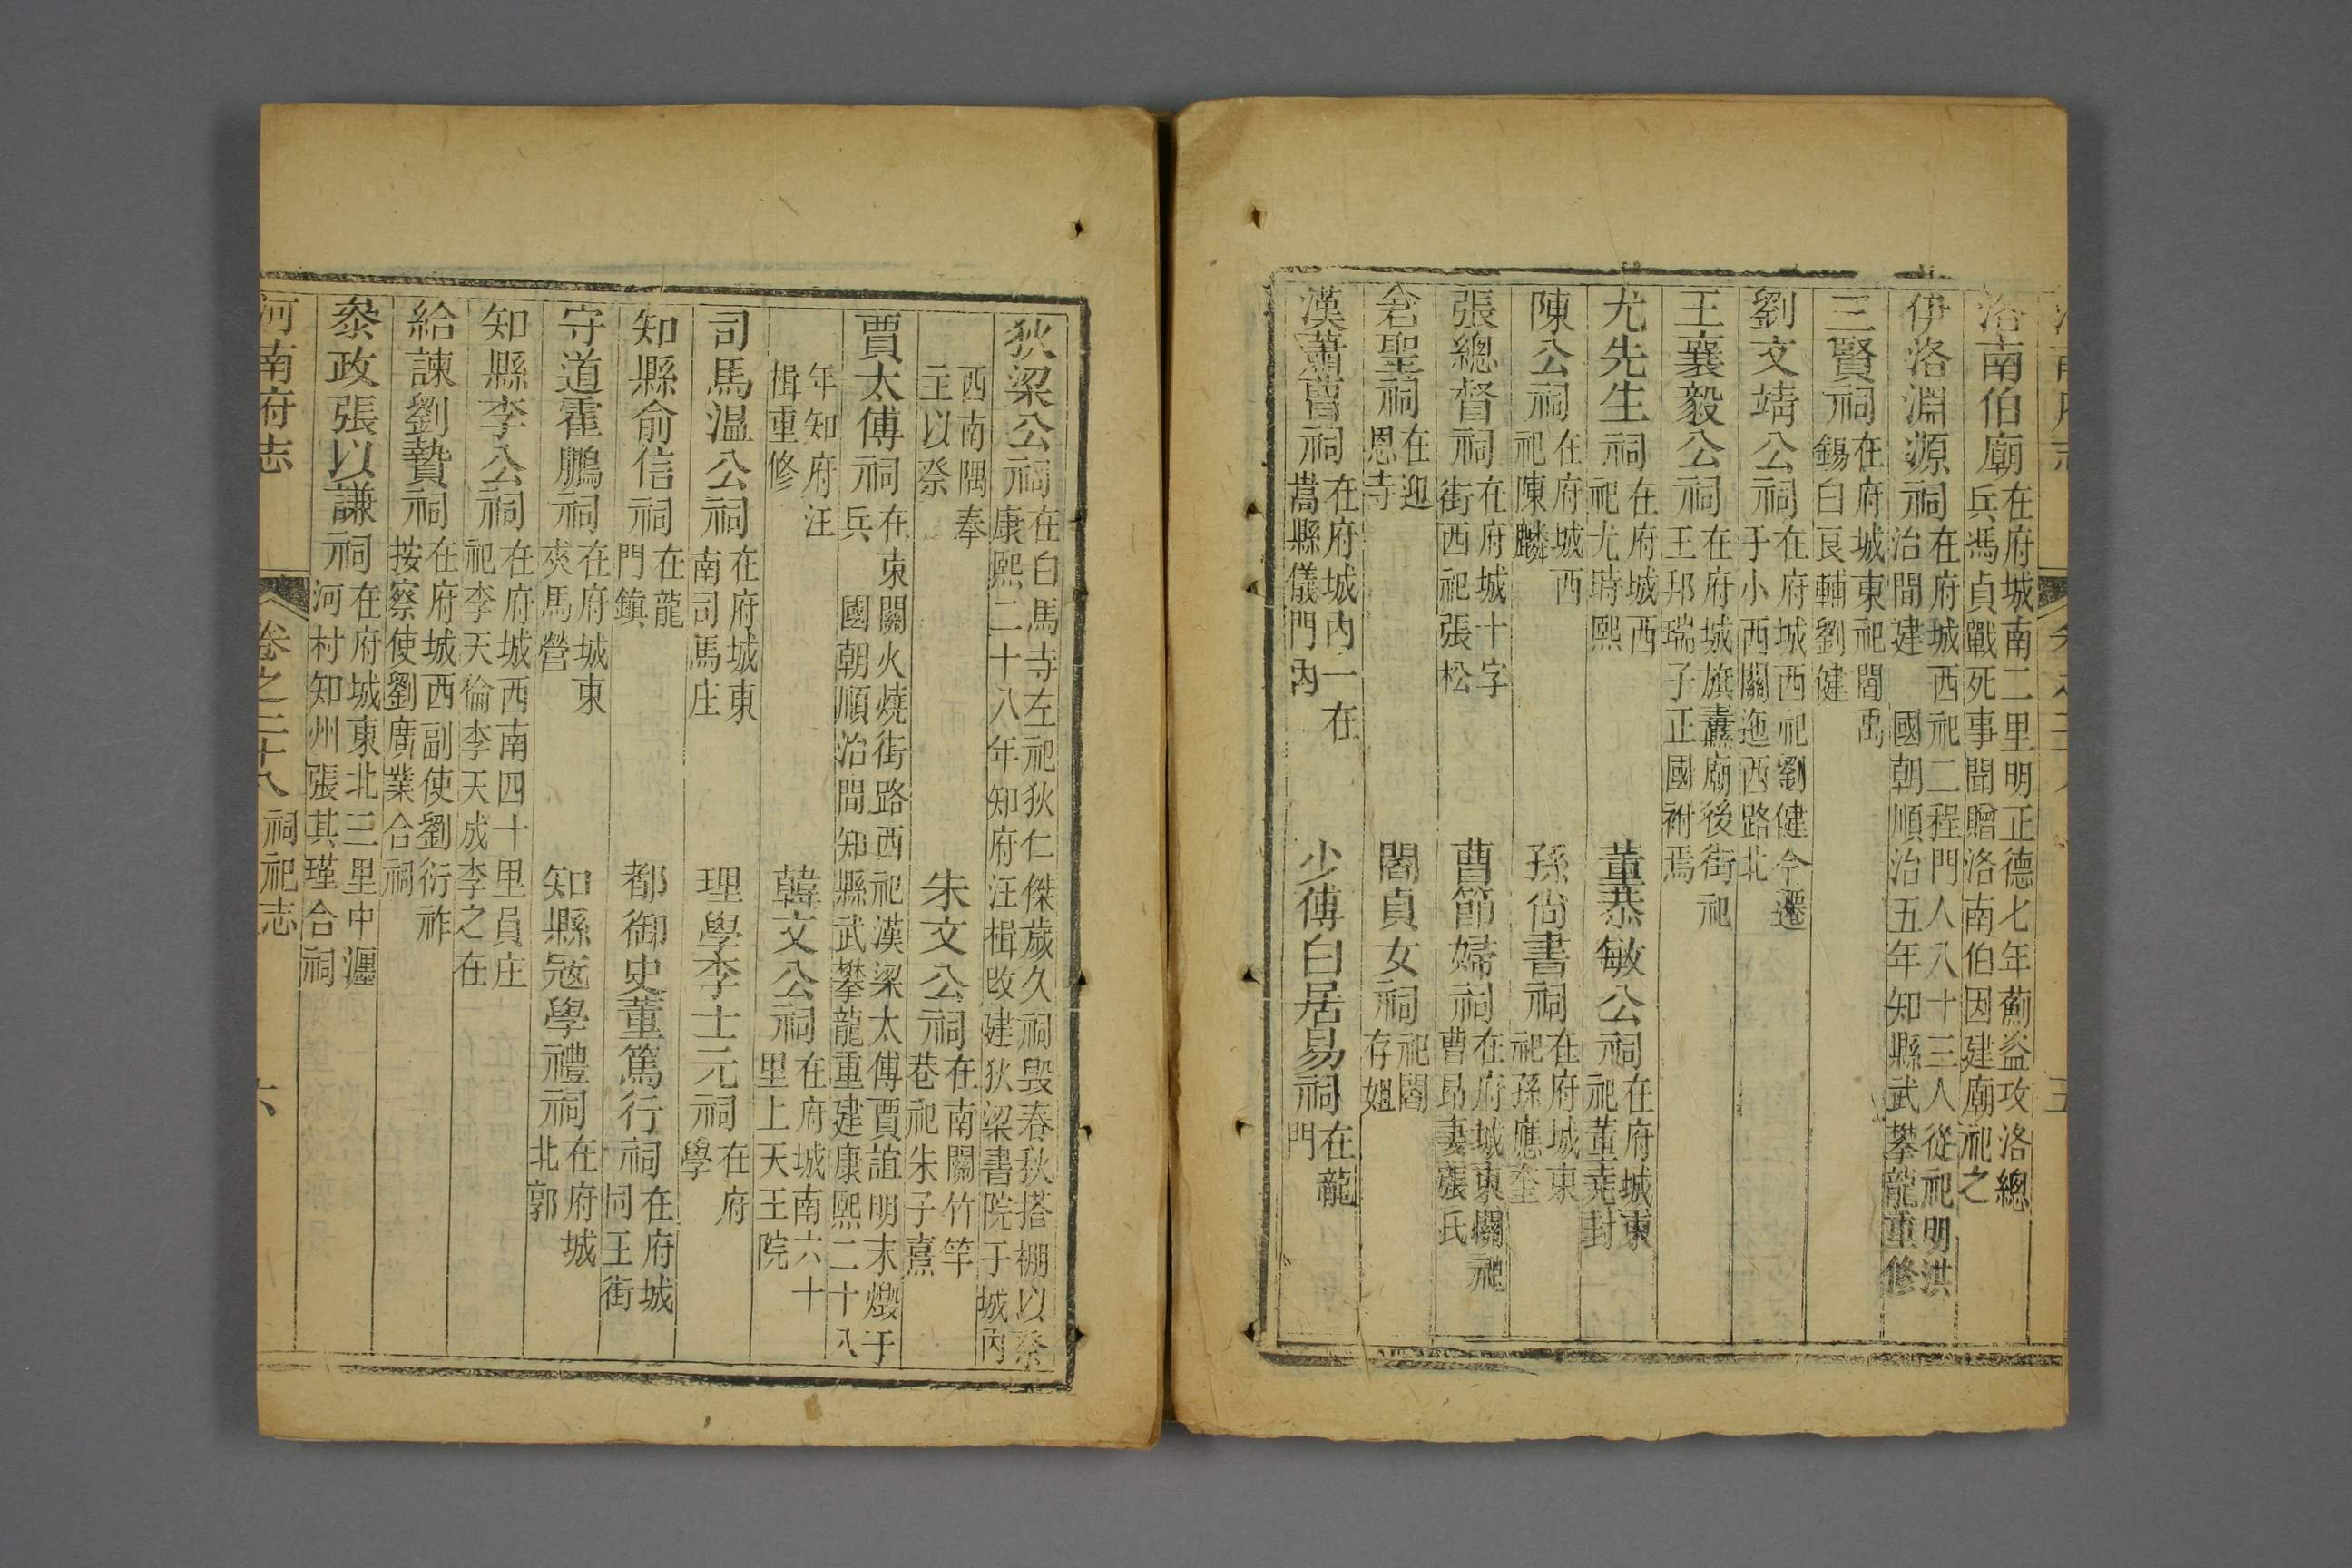 洛南伯廟在府城南二里明正德七年薊盜攻洛總
兵馮貞戰死事聞贈洛南伯因建廟祀之
伊洛淵源祠在府城西祀二程門人八十三人從祀明洪
治間建 國朝順治五年知縣武攀龍重修
三賢祠在府城東祀閻禹
錫白良輔劉健
劉文靖公祠在府城西祀劉健今遷
于小西關迤西路北
王襄毅公祠在府城旗纛廟後街祀
王邦瑞子正國祔焉
尤先生祠在府城西
祀尤時熙
董恭敏公祠在府城東
祀董堯封
陳公祠在府城西
祀陳麟
孫尚書祠在府城東
祀孫應奎
張總督祠在府城十字
街西祀張松
曹節婦祠在府城東關祀
曹昻妻張氏
倉聖祠在迎
恩寺
閻貞女祠祀閻
存姐
漢蕭曹祠在府城內一在
嵩縣儀門內
少傅白居易祠在龍
門
狄梁公祠在白馬寺左祀狄仁傑歲久祠毀春秋搭棚以祭
康熙二十八年知府汪楫改建狄梁書院于城內
西南隅奉
主以祭
朱文公祠在南關竹竿
巷祀朱子熹
賈太傅祠在東關火燒街路西祀漢梁太傅賈誼明末燬于
兵 國朝順治間知縣武攀龍重建康熙二十八
年知府汪
楫重修
韓文公祠在府城南六十
里上天王院
司馬溫公祠在府城東
南司馬庄
理學李士元祠在府
學
知縣俞信祠在龍
門鎮
都御史董篤行祠在府城
同王街
守道霍鵬祠在府城東
夾馬營
知縣冦學禮祠在府城
北郭
知縣李公祠在府城西南四十里員庄
祀李天倫李天成李之在
給諫劉贄祠在府城西副使劉衍祚
按察使劉廣業合祠
叅政張以謙祠在府城東北三里中瀍
河村知州張其瑾合祠
河南府志 卷之二十八 祠祀志 六